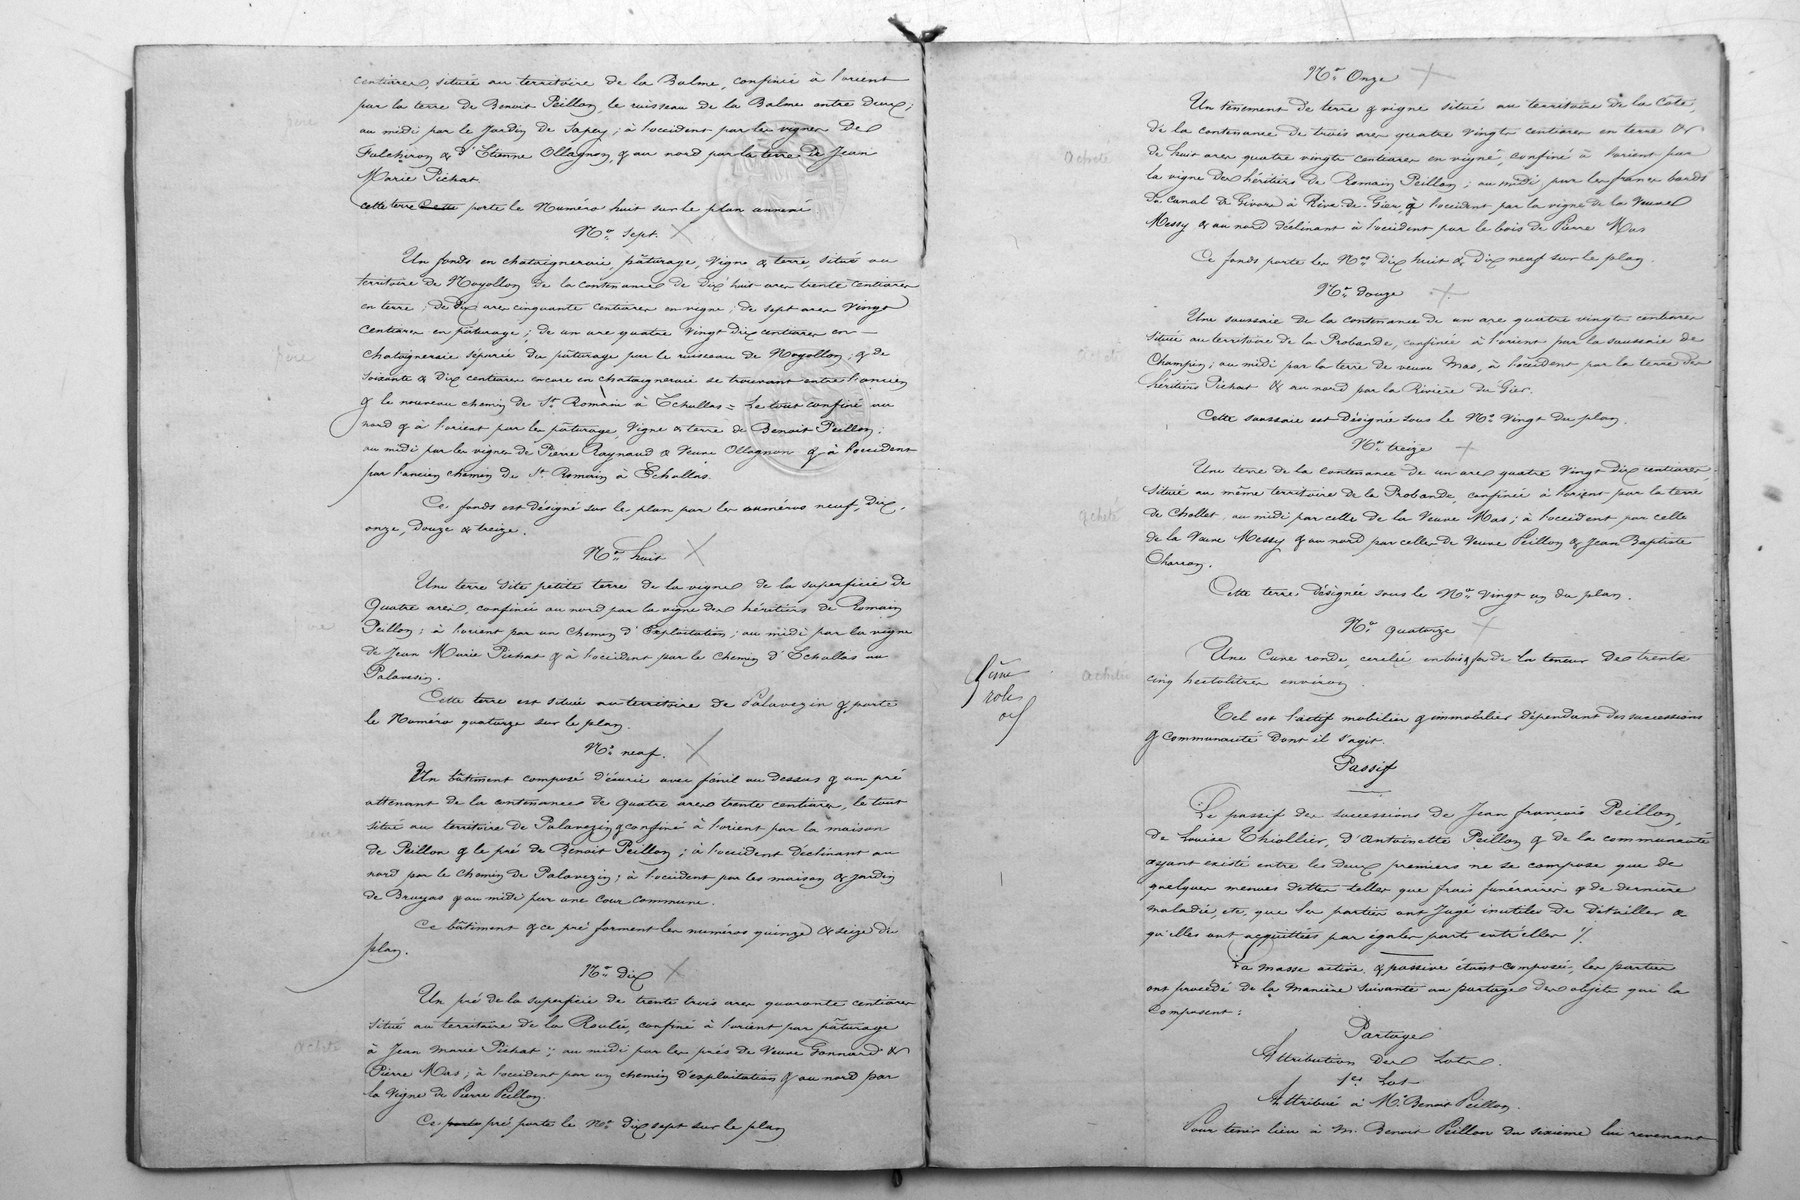 centiares, située au territoire de la Balme, confinée à l'orient
par la terre de Benoit Peillon, le ruisseau de la Balme entre deux;
au midi par le Jardin de Sapey; à l'occident par les vignes de
Fulchiron & d'Etienne Ollagnon, & au nord par la terre de Jean
Marie Pichat.
cette terre porte le Numéro huit sur le plan annexé
père
No. sept.
Un fonds en chataigneraie, pâturage, Vigne & terre, situé au
territoire de Noyollon de la contenance de dix huit ares trente centiares
en terre; de dix ares cinquante centiares en vigne; de sept ares Vingt
centiares en pâturage; de un are quatre Vingt dix centiares en
chataigneraie séparée du pâturage par le ruisseau de Noyollon; & de
soixante & dix centiares encore en chataigneraie se trouvant entre l'ancien
& le nouveau chemin de St. Romain à Echallas = Le tout confiné au
nord & à l'orient par les pâturage, Vigne & terre de Benoit Peillon;
au midi par les vignes de Pierre Raynaud & Veuve Ollagnon & à l'occident
par l'ancien chemin de St. Romain à Echallas.
père
Ce fonds est désigné sur le plan par les numéros neuf, dix,
onze, douze & treize.
No. huit
Une terre dite petite terre de la vigne de la superficie de
Quatre ares, confinée au nord par la vigne des héritiers de Romain
Peillon; à l'orient par un chemin d'Exploitation; au midi par la vigne
de Jean Marie Pichat & à l'occident par le chemin d'Echallas au
Palavezin.
Cette terre est située au territoire de Palavezin & porte
le Numéro quatorze sur le plan.
No. neuf.
Un bâtiment composé d'écurie avec fenil au dessus & un pré
attenant de la contenance de quatre ares trente centiares, le tout
situé au territoire de Palavezin & confiné à l'orient par la maison
de Peillon & le pré de Benoit Peillon; à l'occident déclinant au
nord par le Chemin de Palavezin; à l'occident par les maison & jardin
de Bruyas & au midi par une Cour commune.
Ce bâtiment & ce pré forment les numéros quinze & seize du
plan.
No. dix
Un pré de la superficie de trente trois ares quarante centiares
situé au territoire de la Roulée, confiné à l'orient par pâturage
à Jean Marie Pichat; au midi par les prés de Veuve Gonnard &
Pierre Mas; à l'occident par un chemin d'exploitation & au nord par
la Vigne de Pierre Peillon.
acheté
Ce porte pré porte le No. dix sept sur le plan
No. Onze
Un tènement de terre & vigne situé au territoire de la Cote,
de la contenance de trois ares quatre vingts centiares en terre &
de huit ares quatre vingts centiares en vigne, confiné à l'orient par
la vigne des héritiers de Romain Peillon; au midi par les francs bords
du canal de Givors à Rive de Gier, à l'occident par la vigne de la Veuve
Messy & au nord déclinant à l'occident par le bois de Pierre Mas
acheté
Ce fonds porte les Nos. dix huit & dix neuf sur le plan.
No. douze
Une saussaie de la contenance de un are quatre vingts centiares
située au territoire de la Probande, confinée à l'orient par la saussaie de
Champin; au midi par la terre de veuve Mas, à l'occident par la terre des
héritiers Pichat & au nord par la Rivière du Gier.
acheté
Cette saussaie est désignée sous le No. Vingt du plan.
No. treize
Une terre de la contenance de un are quatre Vingt dix centiares,
située au même territoire de la Probande, confinée à l'orient par la terre
de Chollet, au midi par celle de la Veuve Mas; à l'occident par celle
de la Veuve Messy & au nord par celles de Veuve Peillon & Jean Baptiste
Charron.
acheté
Cette terre désignée sous le No. Vingt un du plan.
No. quatorze
Une Cuve ronde, cerclée en bois & fer de la teneur de trente
cinq hectolitres environ.
achetée
Tel est l'actif mobilier & immobilier dépendant des successions
& communauté dont il s'agit.
Passif
Le passif des successions de Jean françois Peillon,
de Louise Thiollier, d'Antoinette Peillon & de la communauté
ayant existé entre les deux premiers ne se compose que de
quelques menues dettes telles que frais funéraires & de dernière
maladie, etc, que les parties ont Jugé inutiles de détailler &
qu'elles ont acquittées par égales parts entr'elles %.
La masse active & passive étant composée, les parties
ont procédé de la manière suivante au partage des objets qui la
composent:
Partage
Attribution des Lots.
1er. Lot
Attribué à Mr. Benoit Peillon.
Pour tenir lieu à M. Benoit Peillon du sixième lui revenant